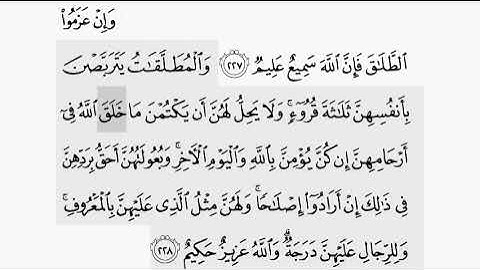 وَإِنْ عَزَمُوا۟
ٱلطَّلَٰقَ فَإِنَّ ٱللَّهَ سَمِيعٌ عَلِيمٌ ﴿٢٢٧﴾ وَٱلْمُطَلَّقَٰتُ يَتَرَبَّصْنَ
بِأَنفُسِهِنَّ ثَلَٰثَةَ قُرُوٓءٍ ۚ وَلَا يَحِلُّ لَهُنَّ أَن يَكْتُمْنَ مَا خَلَقَ ٱللَّهُ فِىٓ
أَرْحَامِهِنَّ إِن كُنَّ يُؤْمِنَّ بِٱللَّهِ وَٱلْيَوْمِ ٱلْءَاخِرِ ۚ وَبُعُولَتُهُنَّ أَحَقُّ بِرَدِّهِنَّ
فِى ذَٰلِكَ إِنْ أَرَادُوٓا۟ إِصْلَٰحًا ۚ وَلَهُنَّ مِثْلُ ٱلَّذِى عَلَيْهِنَّ بِٱلْمَعْرُوفِ ۚ
وَلِلرِّجَالِ عَلَيْهِنَّ دَرَجَةٌ ۗ وَٱللَّهُ عَزِيزٌ حَكِيمٌ ﴿٢٢٨﴾